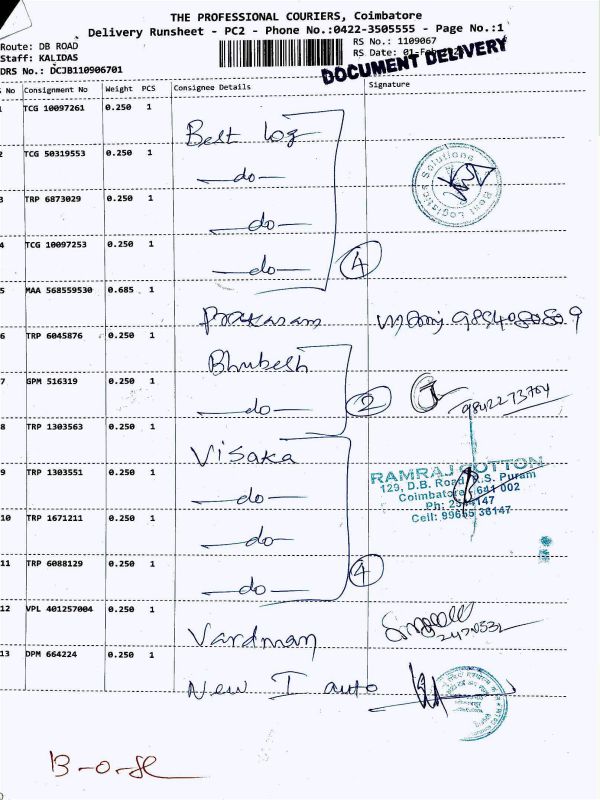 THE PROFESSIONAL COURIERS, Coimbatore
Delivery Runsheet - PC2 - Phone No.:0422-3505555 - Page No.:1
Route: DB ROAD
RS No.: 1109067
Staff: KALIDAS
RS Date: 01-Feb
DRS No.: DCJB110906701
DOCUMENT DELIVERY
No Consignment No Weight PCS Consignee Details Signature
1 TCG 10097261 0.250 1
Best log
2 TCG 50319553 0.250 1
-do-
Best Logistics Solutions
3 TRP 6873029 0.250 1
-do-
4 TCG 10097253 0.250 1
-do- 4
5 MAA 568559530 0.685 1
Prakasam
6 TRP 6045876 0.250 1
Bhubesh
7 GPM 516319 0.250 1
-do- 2 9842273704
8 TRP 1303563 0.250 1
Visaka
RAMRAJ COTTON
9 TRP 1303551 0.250 1
129, D.B. Road, R.S. Puram
-do-
Coimbatore 641 002
10 TRP 1671211 0.250 1
Cell: 99655 36147
-do-
11 TRP 6088129 0.250 1
-do- 4
12 VPL 401257004 0.250 1
Vardman
13 DPM 664224 0.250 1
New I auto